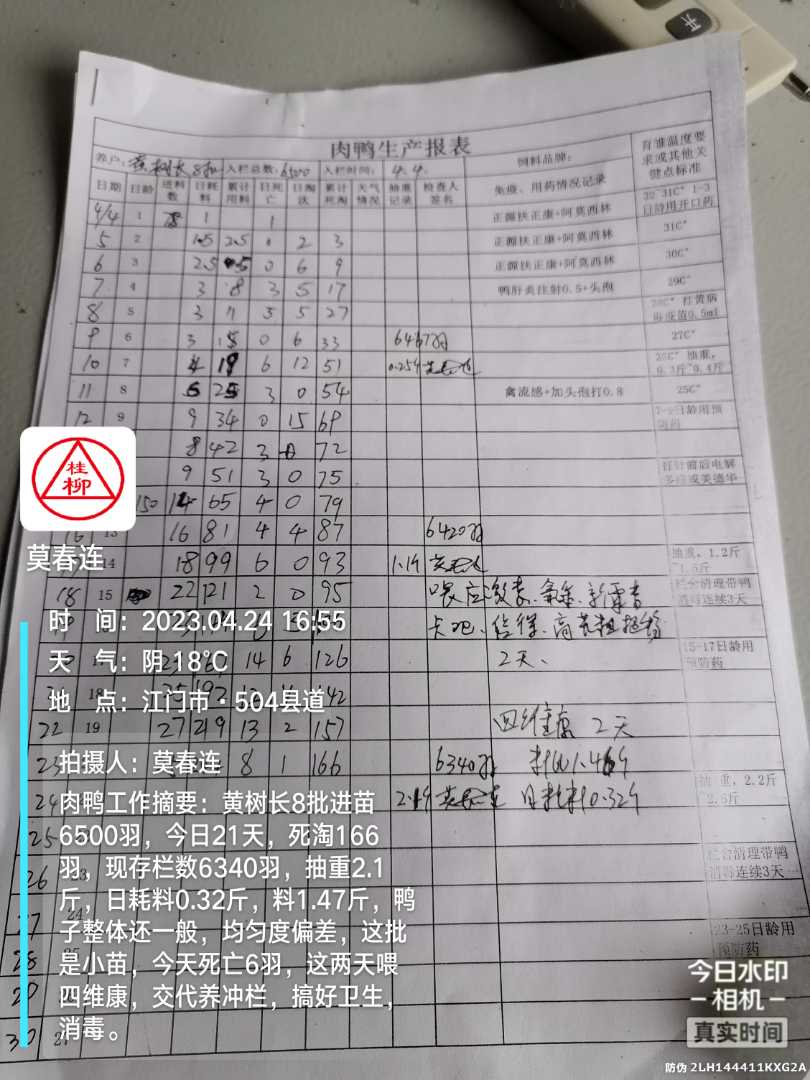 肉鸭生产报表
养户：黄树长8批 入栏总数：6500 入栏时间：4.4. 饲料品牌： 育雏温度要求或其他关键点标准
日期 日龄 进料数 日耗料 累计用料 日死亡 日淘汰 累计死淘 天气情况 抽重记录 检查人签名 免疫、用药情况记录
4/4 1 1 1 正源扶正康+阿莫西林 31C° 1-3日龄用开口药
5 2 1.5 2.5 0 2 3 正源扶正康+阿莫西林 31C°
6 3 2.5 5 0 6 9 正源扶正康+阿莫西林 30C°
7 4 3 8 3 5 17 鸭肝炎注射0.5+头孢 29C°
8 5 3 11 5 5 27
9 6 3 15 0 6 33 6467羽 27C°
10 7 4 19 6 12 51 0.25斤 抽重，
11 8 6 25 3 0 54 禽流感+加头孢打0.8 25C°
12 9 9 34 0 15 69 日龄用预防药
8 42 3 0 72
9 51 3 0 75 打针前后电解多
150 14 65 4 0 79
16 13 16 81 4 4 87 6420羽
14 18 99 6 0 93 1.1斤 抽重，1.2斤~1.5斤
18 15 22 121 2 0 95 栏舍清理带鸭消毒连续3天
14 6 126 2天、 15-17日龄用预防药
18 192 142
22 19 27 219 13 2 157 四维康 2天
23 8 1 166 6340羽
24 2.1斤 日耗料0.32斤 抽重，2.2斤~2.5斤
25
26 栏舍清理带鸭消毒连续3天
27 24
28 23-25日龄用预防药
29
30
桂柳
莫春连
时 间：2023.04.24 16:55
天 气：阴 18℃
地 点：江门市·504县道
拍摄人：莫春连
肉鸭工作摘要：黄树长8批进苗
6500羽，今日21天，死淘166
羽，现存栏数6340羽，抽重2.1
斤，日耗料0.32斤，料1.47斤，鸭
子整体还一般，均匀度偏差，这批
是小苗，今天死亡6羽，这两天喂
四维康，交代养冲栏，搞好卫生，
消毒。
今日水印
相机
真实时间
防伪 2LH144411KXG2A